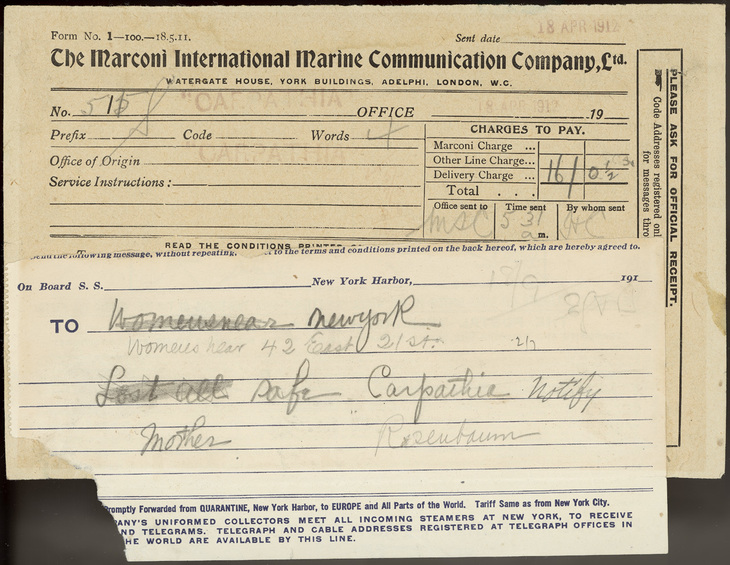 Form No. 1—100.—18.5.11.
Sent date 18 APR 1912
The Marconi International Marine Communication Company, Ltd.
WATERGATE HOUSE, YORK BUILDINGS, ADELPHI, LONDON, W.C.
No. OFFICE 18 APR 1912 19
Prefix Code Words
Office of Origin
Service Instructions:
CHARGES TO PAY.
Marconi Charge ...
Other Line Charge...
Delivery Charge ... 16/
Total . . .
Office sent to Time sent By whom sent
MSC 5 31 a m.
PLEASE ASK FOR OFFICIAL RECEIPT.
Code Addresses registered
for messages
READ THE CONDITIONS PRINTED
the following message, without repeating, to the terms and conditions printed on the back hereof, which are hereby agreed to.
On Board S. S. New York Harbor, 191
TO Womenswear Newyork
Womens wear 42 East 21 st.
Lost all safe Carpathia Notify
Mother Rosenbaum
romptly Forwarded from QUARANTINE, New York Harbor, to EUROPE and All Parts of the World. Tariff Same as from New York City.
PANY'S UNIFORMED COLLECTORS MEET ALL INCOMING STEAMERS AT NEW YORK, TO RECEIVE
ND TELEGRAMS. TELEGRAPH AND CABLE ADDRESSES REGISTERED AT TELEGRAPH OFFICES IN
THE WORLD ARE AVAILABLE BY THIS LINE.